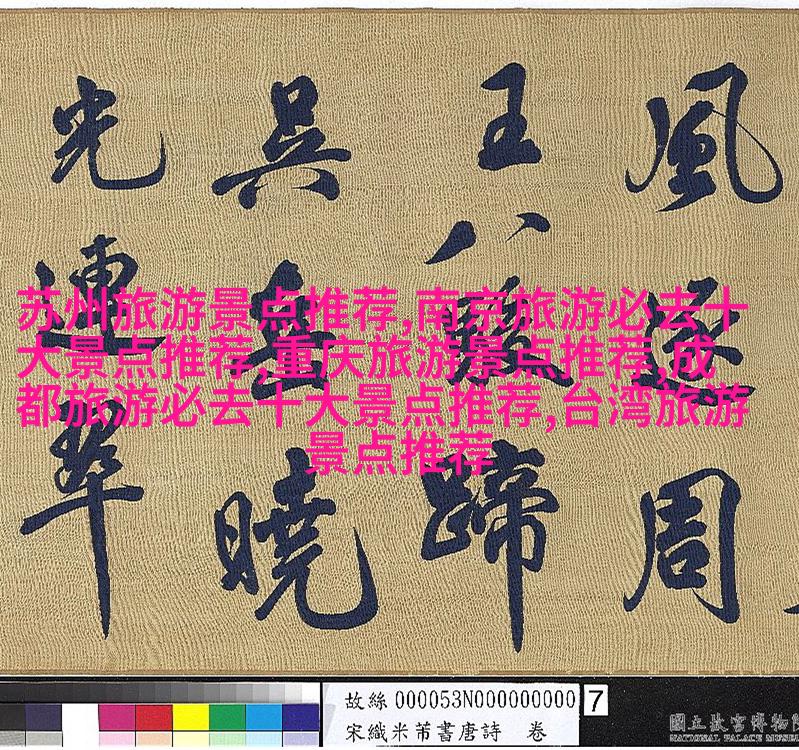 風逐周
王八駿蹄
吳岳曉
光連翠
苏州旅游景点推荐,南京旅游必去十
大景点推荐,重庆旅游景点推荐,成
都旅游必去十大景点推荐,台湾旅游
景点推荐
故絲 000053N000000000 7
宋織米芾書唐詩 卷
國立故宮博物院
NATIONAL PALACE MUSEUM